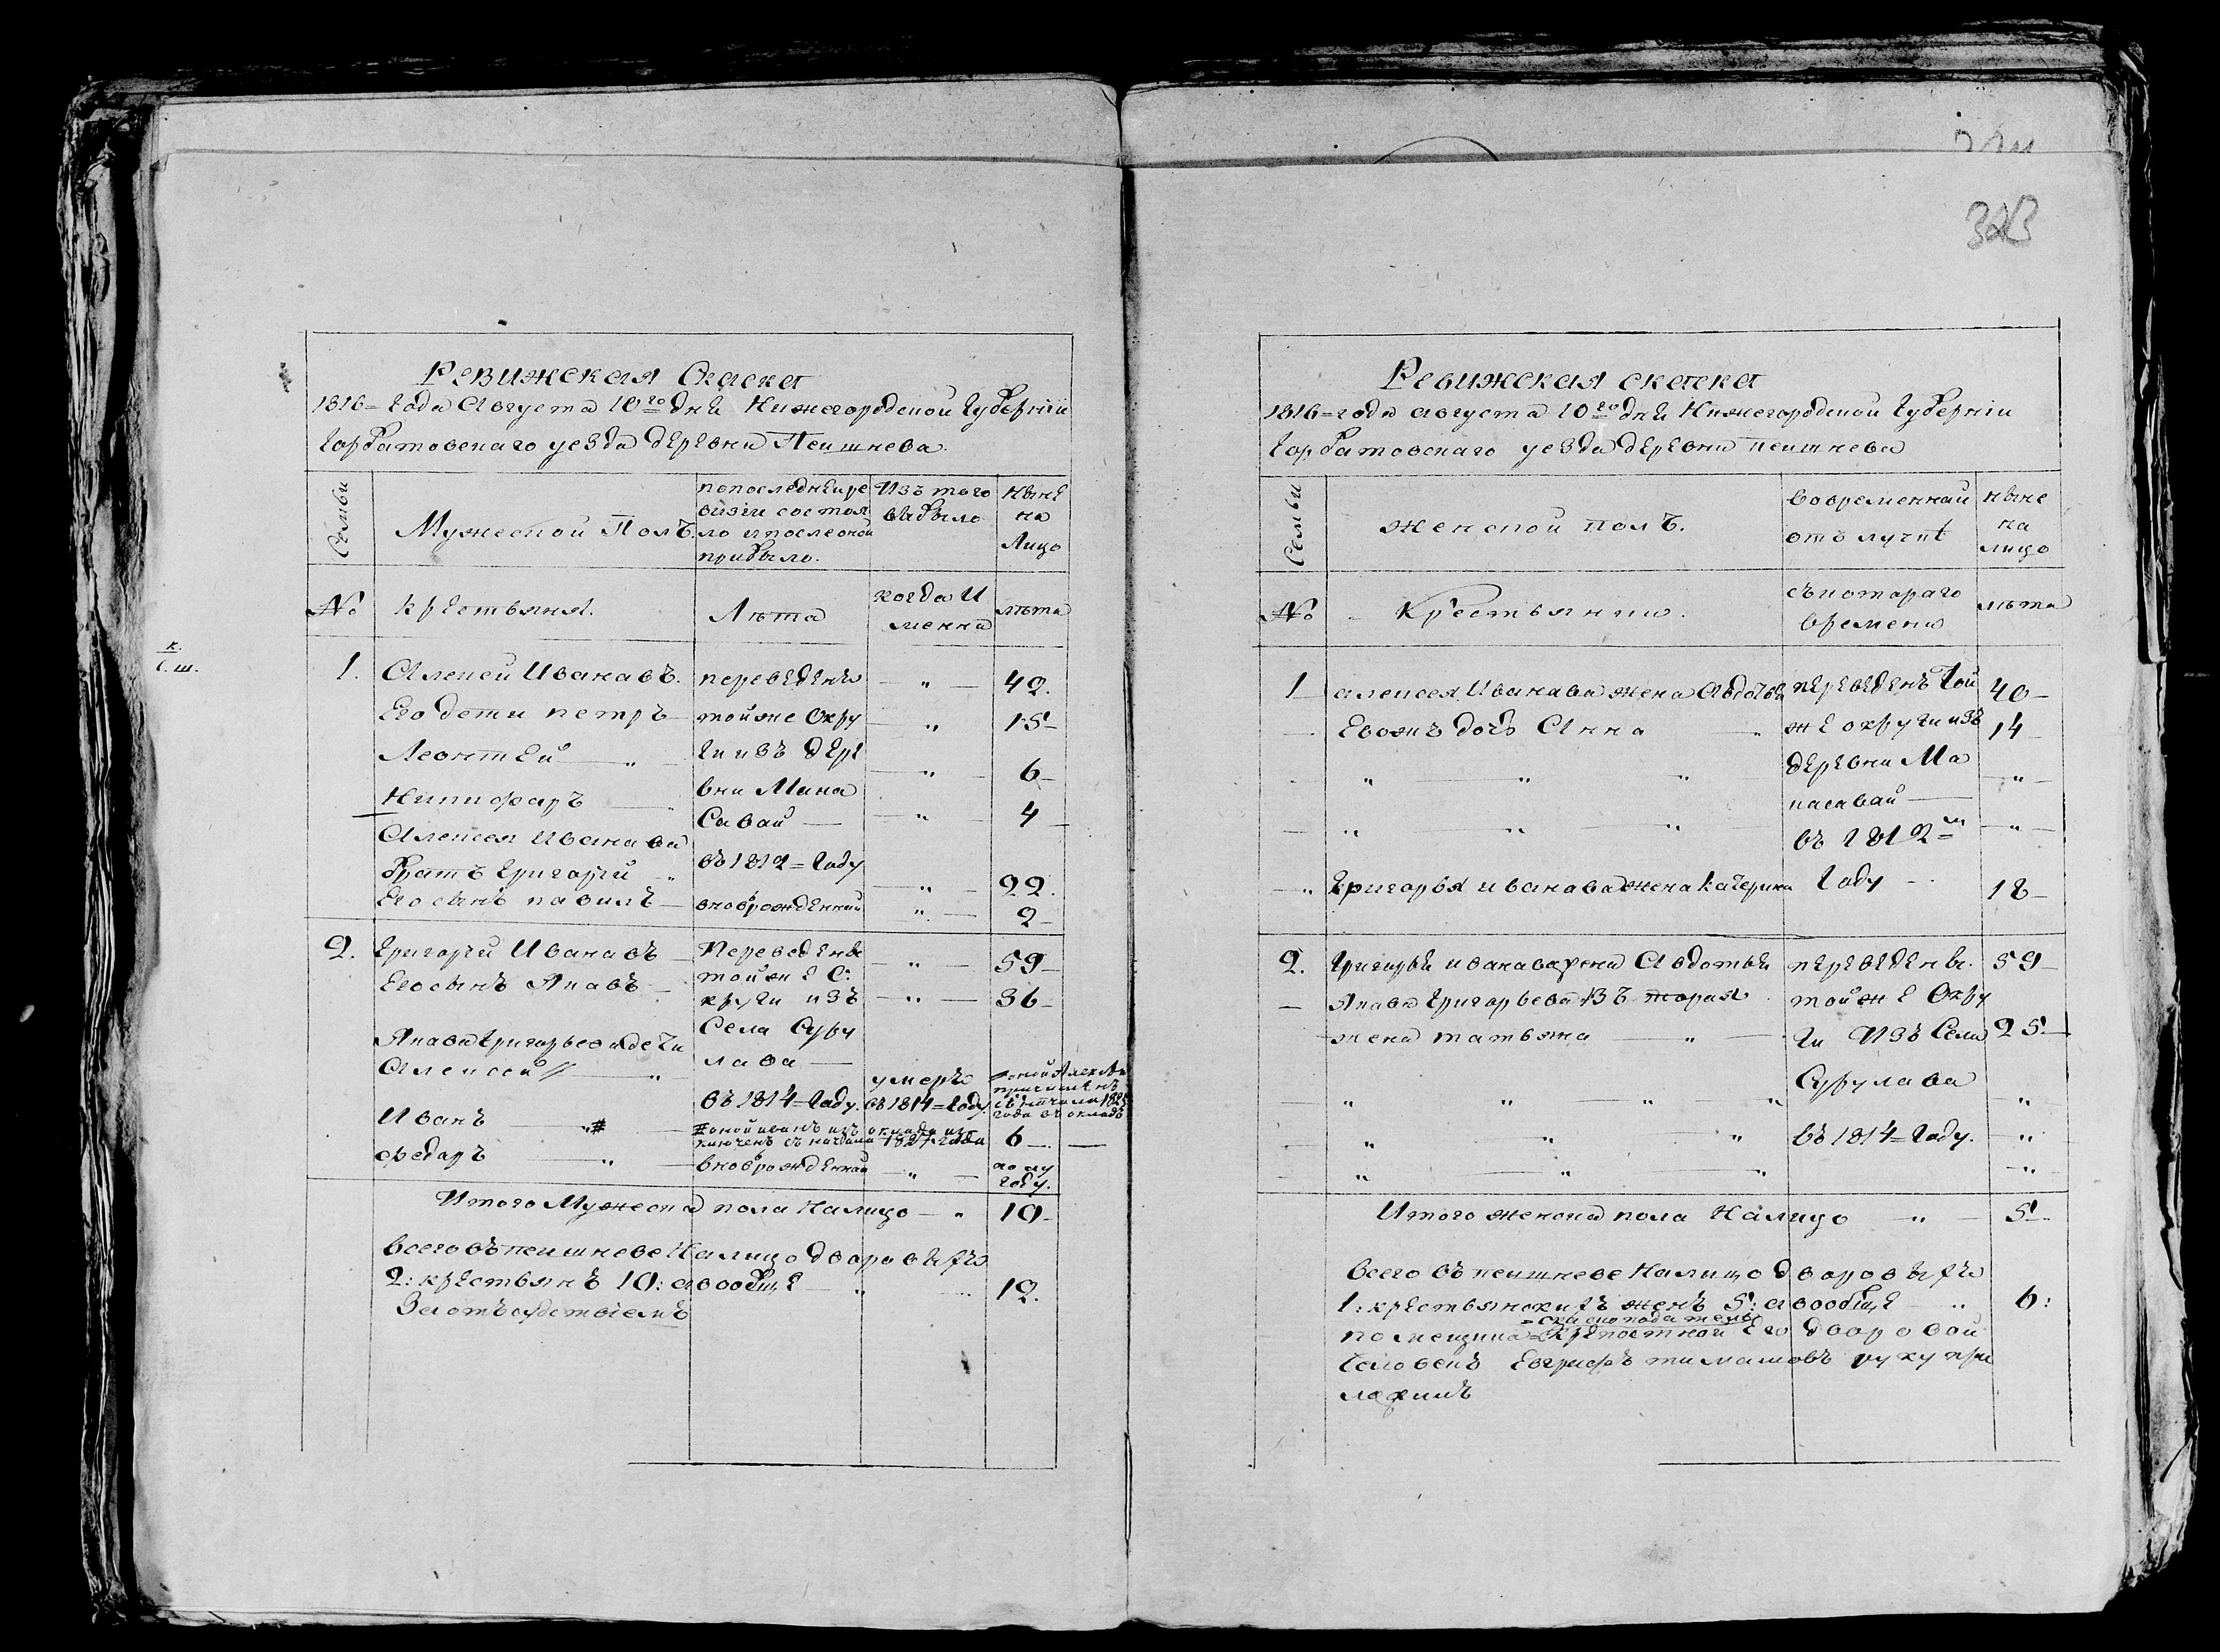 323
Ревижская Скаска
1816 = года Августа 10го дня Нижегородской губернии
горбатовскаго уезда деревни Пеишнева.
Семьи
Мужеской Полъ.
попоследней ре
визiи состоя
ло ипослеоной
прибыло.
Изъ того
выбыло
ныне
на
Лицо
№
крестьяня.
Лѣта
когда И
менна
лѣта
к.
с. ш.
1. Алексей Иванавъ. переведенъ — " — 42.
Его дети петръ — тойже Окру — " 15 —
Леонтей — " — ги изъ дере — " — 6 —
Никифаръ — " вни Мака — " — 4 —
Савай —
Алексея Иванава
братъ григорiй " въ 1812 = году — " — 22.
Его сынъ павилъ — вновьрожденнай " — 2 —
2. григорiй Иванавъ — Переведены — " — 59 —
Его сынъ Якавъ — тойже О:
круги изъ — " — 36 —
Села Суру
Якава григорьева дети лава —
Алексей // — " въ 1814 = году. умеръ
въ 1814 = году
Иванъ — " # 6 — —
# оной иванъ изъ оклада из
ключенъ съ начала 1827. года
федаръ — " — вновьрожденнай — " — полу
году.
Итого Мужеска пола Налицо — " 10 —
всего въ пеишневе Налицо дворовыхъ
2: крестьянъ 10: авообще — " — 12.
Заотъсудствiемъ
Ревижская скаска
1816 = года августа 10го дня Нижегородской губернiи
горбатовскаго уезда деревни пеишнева
Семьи
женской полъ.
вовременнай
отълучкѣ
ныне
на
лицо
№
Крестьянки.
съкотараго
времени
лѣта
1 алексея Иванава жена Авдотья переведенъ той 40 —
— Евожъ дочь Анна " же округи изъ 14 —
деревни Ма
— " — " — " — " —
касавай —
— " — " — " въ 1812м — " —
— " григорья иванава жена катерина году — 18 —
2. григорья иванава жена Авдотья переведены. 59 —
— Якава григорьева въторая тойже Окру
— жена татьяна — " — ги Изъ Села 25 —
Сурулава
— " — " — " — " "
— " — " — " въ 1814 = году. — "
— " — " — " — "
Итого женска пола Налицо — " — 5 —
всего въ пеишневе Налицо дворовыхъ
1: крестьянскихъ женъ 5: авообще — " 6:
помещика = крепостной Его дворовой
человекъ Евграфъ тимашовъ руку при
ложилъ